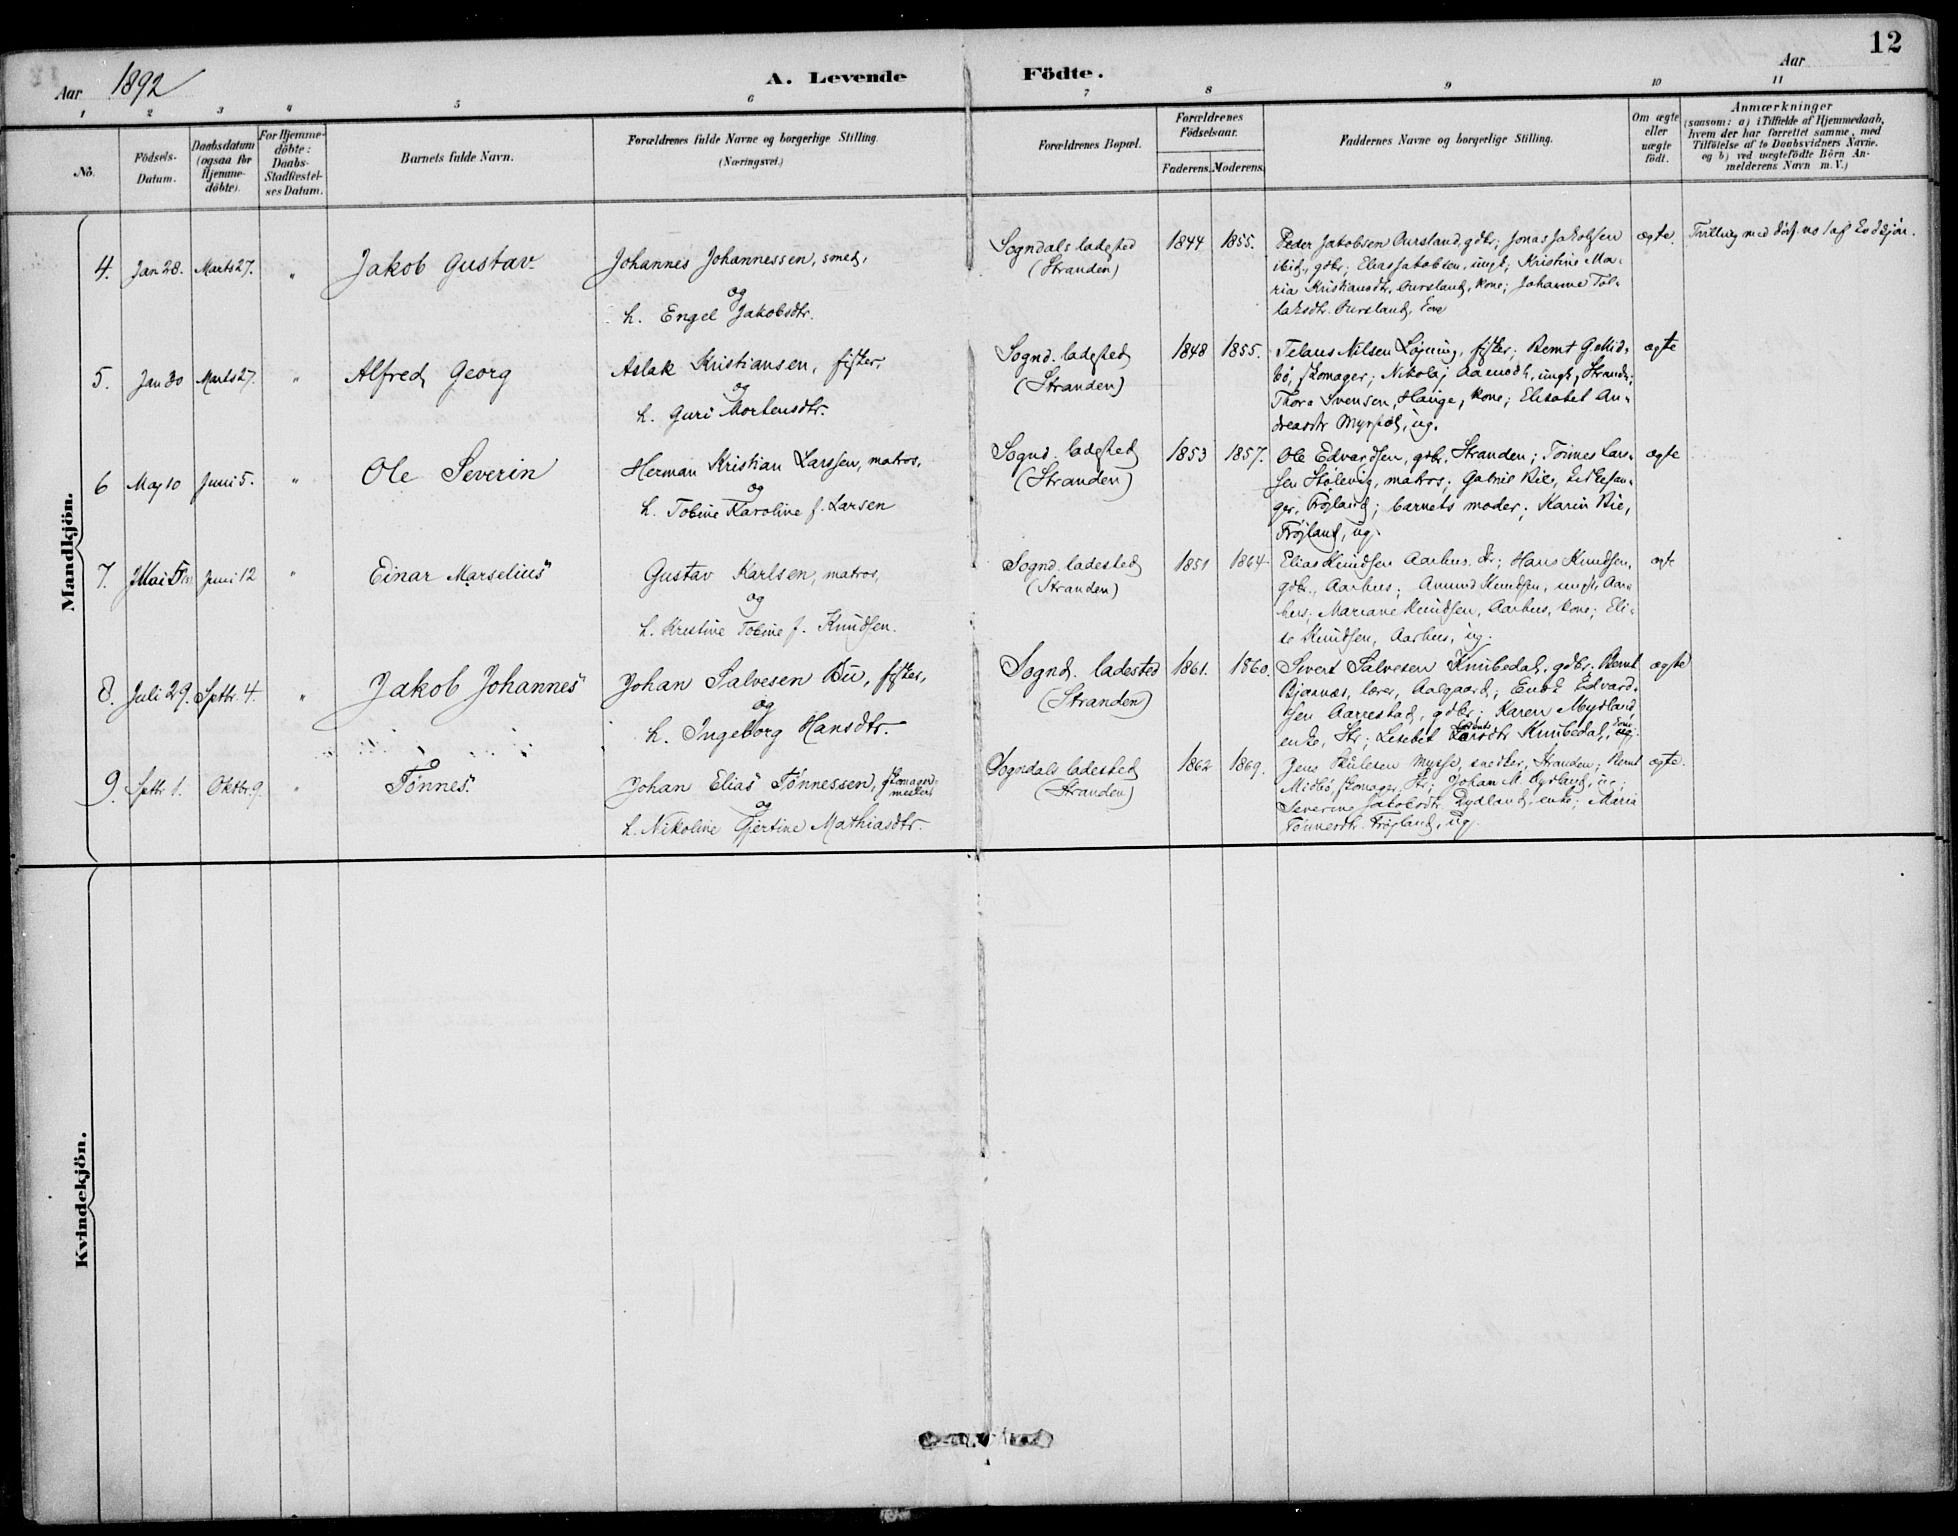 12
Aar 1892
A. Levende Födte.
Aar
1 2 3 4 5 6 7 8 9 10 11
No.
Födsels-
Datum.
Daabsdatum
(ogsaa for
Hjemme-
döbte).
For Hjemme-
döbte:
Daabs-
Stadfæstel-
ses Datum.
Barnets fulde Navn.
Forældrenes fulde Navne og borgerlige Stilling
(Næringsvei.)
Forældrenes Bopæl.
Forældrenes
Födselsaar.
Faderens. Moderens.
Faddernes Navne og borgerlige Stilling.
Om ægte
eller
uægte
födt.
Anmærkninger
(saasom: a) i Tilfælde af Hjemmedaab,
hvem der har forrettet samme, med
Tilföielse af to Daabsvidners Navne.
og b) ved uægtefödte Börn An-
melderens Navn m. V.)
Mandkjön.
4. Jan 28. Marts 27. " Jakob Gustav
Johannes Johannessen, smed,
og
h. Engel Jakobsdtr.
Sogndals ladested
(Stranden)
1844 1855.
Peder Jakobsen Oursland, gdbr; Jonas Jakobsen
ibid., gdbr; Elias Jakobsen, ungk; Kristine Ma-
ria Kristiansdtr. Oursland, kone; Johanne Tol-
laksdtr. Oursland,
ægte.
Tvilling med no 1 af
5. Jan 30 Marts 27. " Alfred Georg
Aslak Kristiansen, fisker,
og
h. Guri Mortensdtr.
Sognd. ladested
(Stranden)
1848 1855.
Nilsen Løyning, fisker; Bernt G Mid-
bö, skomager; Nikolaj Aamodt, ungk, Strand;
Thora Svensen, Hauge, kone; Elisabet An-
dreasdtr Myssel, ug.
ægte
6 May 10 Juni 5. " Ole Severin
Herman Kristian Larssen, matros,
og
h. Tobine Karoline f. Larsen
Sognd. ladested
(Stranden)
1853 1857.
Ole Edvardsen, gdbr. Stranden; Tönnes Lar-
sen Stölevig, matros; Gabriel Bie, kirkesan-
ger, Frøjland; barnets moder; Karin Bie,
Frøjland, ug.
ægte
7. Mai 5 Juni 12 " Einar Marselius
Gustav Karlsen, matros,
og
h. Kristine Tobine f. Knudsen.
Sognd. ladested
(Stranden)
1851 1864
Elias Knudsen Aarhus, Hans Knudsen,
gdbr., Aarhus; Amund Knudsen, ungk, Aar-
hus; Mariane Knudsen, Aarhus, kone; Eli-
se Knudsen, Aarhus, ug.
ægte
8. Juli 29. Septbr. 4. " Jakob Johannes
Johan Salvesen Bu, fisker,
og
h. Ingeborg Hansdtr.
Sognd. ladested
(Stranden)
1861. 1860.
Sivert Salvesen Knubedal, gdbr. Bernt
Bjørnæs, lærer, Aalgaard; Enok Edvard-
sen Aarrestad, gdbr; Karen Mydland
enke, Str; Lisebet Knubedal, ug.
ægte
9. Septbr 1. Oktbr. 9. " Tønnes
Johan Elias Tønnessen, skomager-
mester
og
h. Nikoline Gjertine Mathiasdtr.
Sogndals ladested
(Stranden)
1862 1869.
Jens Skulesen Mysse, snedker, Stranden; Bernt
Midbö, skomager, Str; Johan M Dydland, ug;
Severine Jakobsdtr. Dydland, enke; Maria
Tønnesdtr. Frøjland, ug.
ægte.
Kvindekjön.